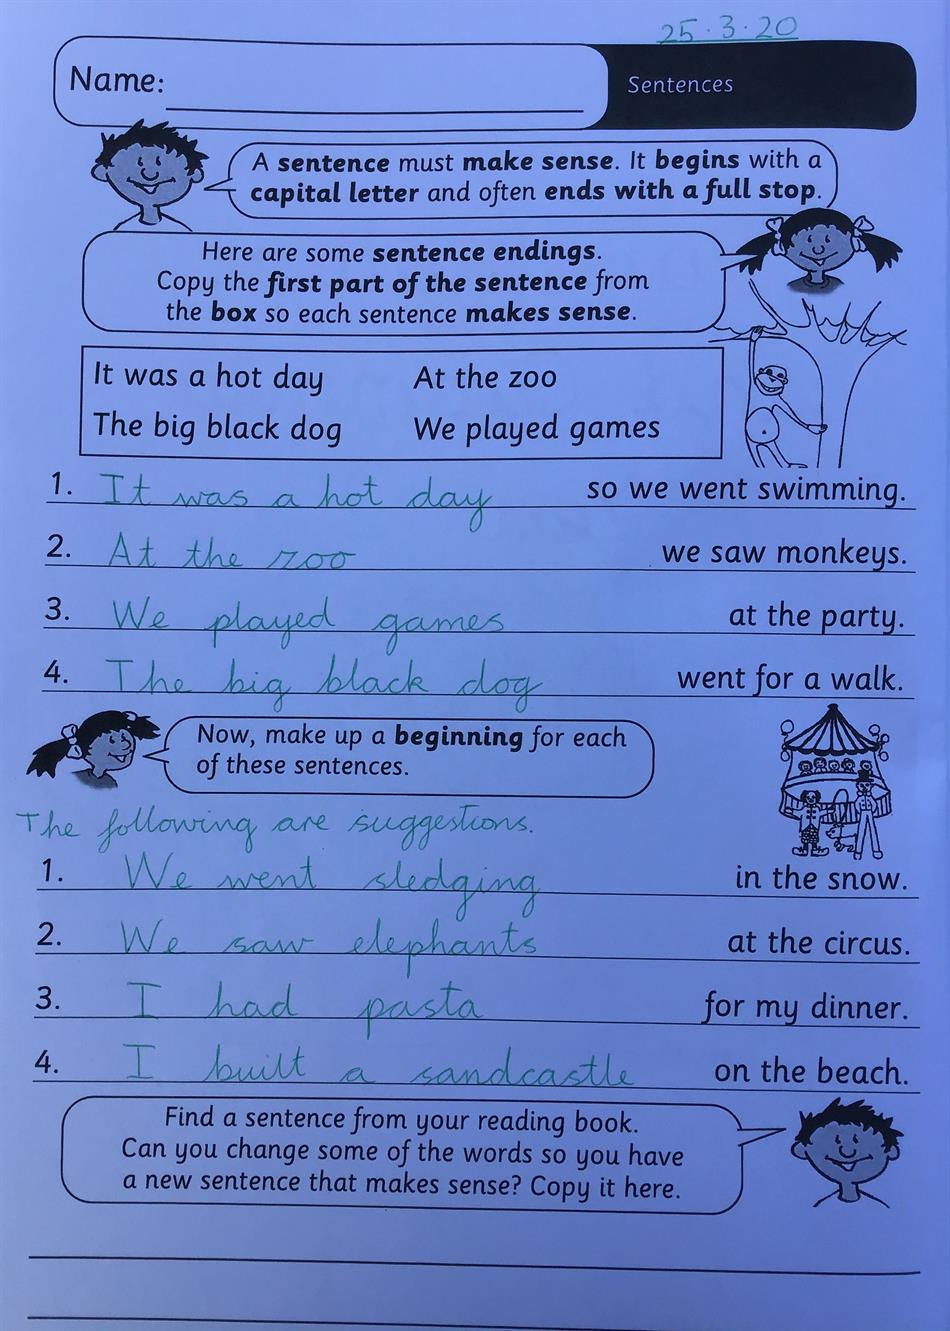 25.3.20
Name:
Sentences
A sentence must make sense. It begins with a
capital letter and often ends with a full stop.
Here are some sentence endings.
Copy the first part of the sentence from
the box so each sentence makes sense.
It was a hot day At the zoo
The big black dog We played games
1. It was a hot day so we went swimming.
2. At the zoo we saw monkeys.
3. We played games at the party.
4. The big black dog went for a walk.
Now, make up a beginning for each
of these sentences.
The following are suggestions.
1. We went sledging in the snow.
2. We saw elephants at the circus.
3. I had pasta for my dinner.
4. I built a sandcastle on the beach.
Find a sentence from your reading book.
Can you change some of the words so you have
a new sentence that makes sense? Copy it here.